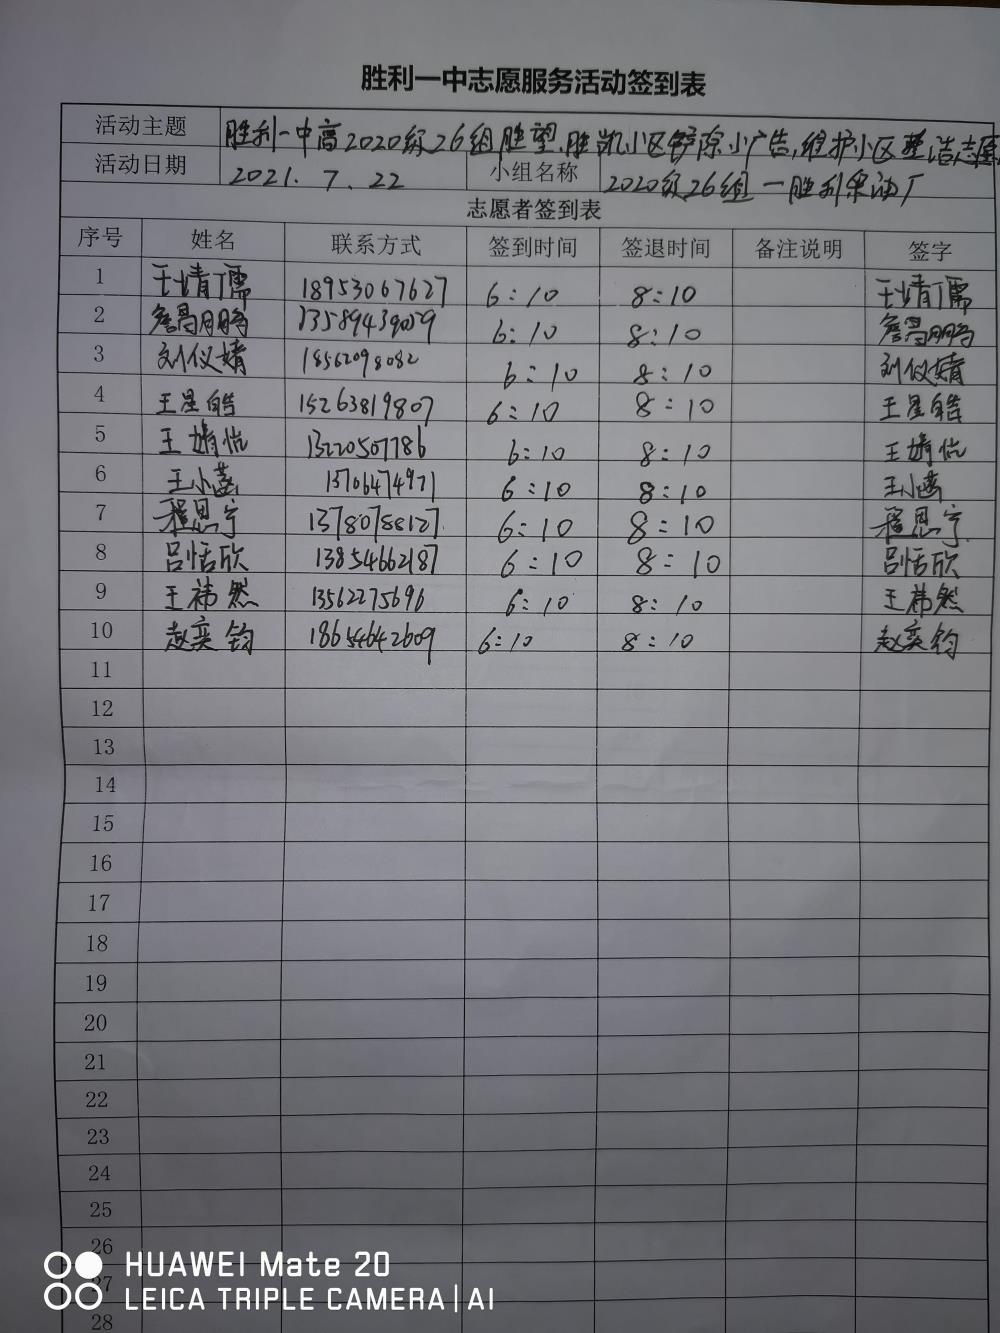 胜利一中志愿服务活动签到表
活动主题 胜利一中高2020级26组胜望、胜凯小区铲除小广告,维护小区整洁志愿
活动日期 2021.7.22 小组名称 2020级26组一胜利采油厂
志愿者签到表
序号 姓名 联系方式 签到时间 签退时间 备注说明 签字
1 王婧儒 18953067627 6:10 8:10 王婧儒
2 詹昺鹏 13589439059 6:10 8:10 詹昺鹏
3 刘仪婧 18562098082 6:10 8:10 刘仪婧
4 王星皓 15263819807 6:10 8:10 王星皓
5 王婧怡 13220507786 6:10 8:10 王婧怡
6 王小菡 13706474971 6:10 8:10 王小菡
7 程思宁 13780788127 6:10 8:10 程思宁
8 吕恬欣 13854662187 6:10 8:10 吕恬欣
9 王祎然 13562275696 6:10 8:10 王祎然
10 赵奕钧 18654642609 6:10 8:10 赵奕钧
11
12
13
14
15
16
17
18
19
20
21
22
23
24
25
26
27
28
HUAWEI Mate 20
LEICA TRIPLE CAMERA | AI